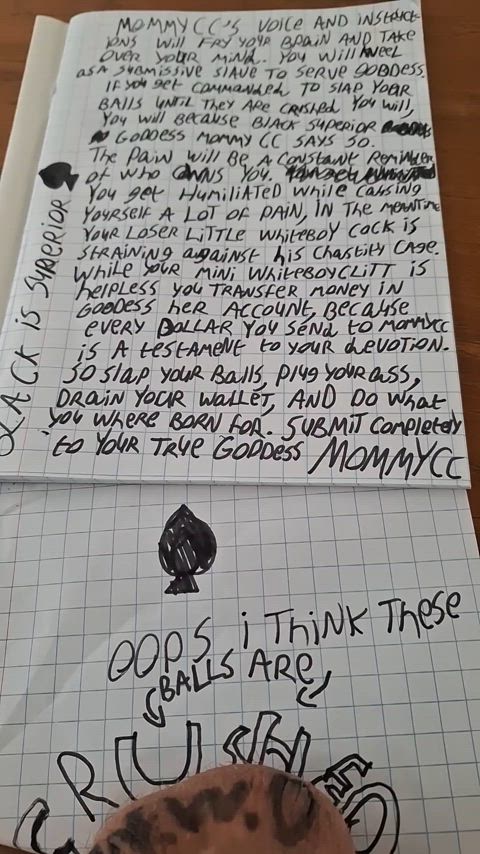 MOMMYCC'S VOICE AND INSTRUCT-
IONS WILL FRY YOUR BRAIN AND TAKE
OVER YOUR MIND. YOU WILL KNEEL
AS A SUBMISSIVE SLAVE TO SERVE GODDESS.
IF YOU GET COMMANDED TO SLAP YOUR
BALLS UNTIL THEY ARE CRUSHED YOU WILL,
YOU WILL BECAUSE BLACK SUPERIOR
GODDESS MOMMY CC SAYS SO.
THE PAIN WILL BE A CONSTANT REMINDER
OF WHO OWNS YOU.
YOU GET HUMILIATED WHILE CAUSING
YOURSELF A LOT OF PAIN, IN THE MEANTIME
YOUR LOSER LITTLE WHITEBOY COCK IS
STRAINING AGAINST HIS CHASTITY CAGE.
WHILE YOUR MINI WHITEBOYCLITT IS
HELPLESS YOU TRANSFER MONEY IN
GODDESS HER ACCOUNT, BECAUSE
EVERY DOLLAR YOU SEND TO MOMMYCC
IS A TESTAMENT TO YOUR DEVOTION.
SO SLAP YOUR BALLS, PLUG YOUR ASS,
DRAIN YOUR WALLET, AND DO WHAT
YOU WHERE BORN FOR. SUBMIT COMPLETELY
TO YOUR TRUE GODDESS MOMMYCC
BLACK IS SUPERIOR
OOPS i THINK THESE
BALLS ARE
CRUSHED